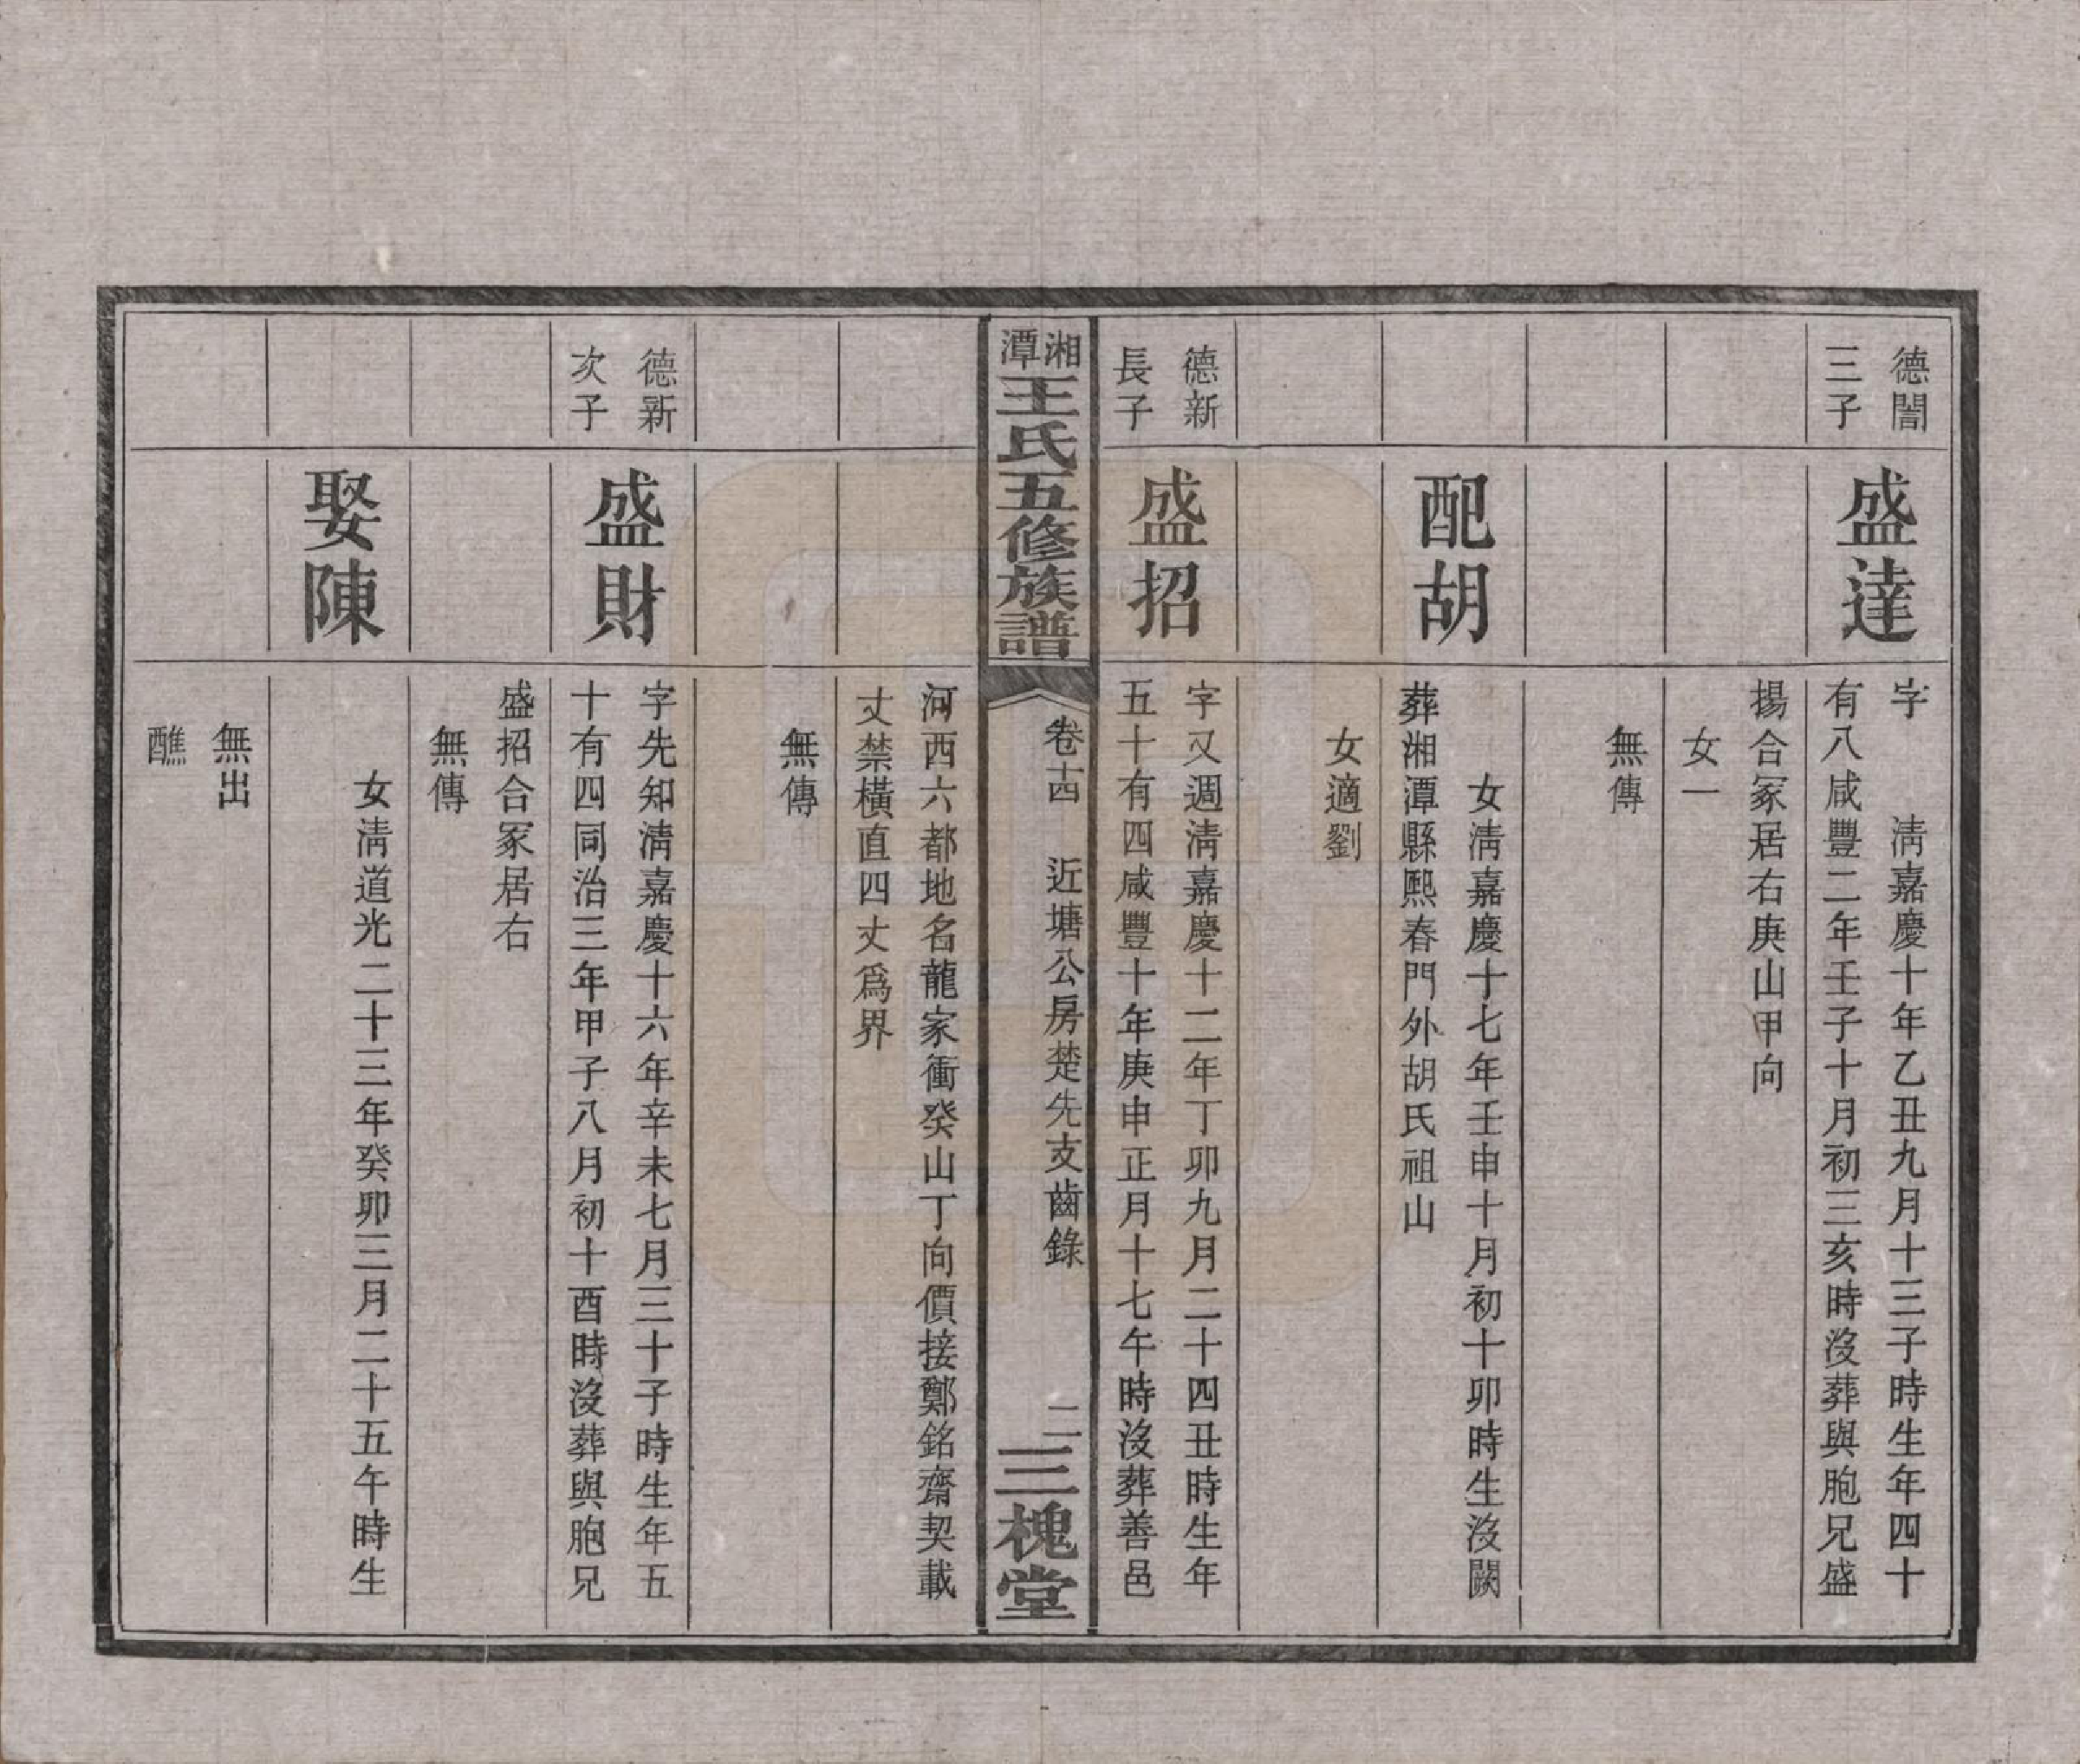 德闇
三子
盛達
字　清嘉慶十年乙丑九月十三子時生年四十
有八咸豐二年壬子十月初三亥時沒葬與胞兄盛
揚合冢居右庚山甲向
女一
無傳
配胡
女清嘉慶十七年壬申十月初十卯時生沒闕
葬湘潭縣熙春門外胡氏祖山
女適劉
德新
長子
盛招
字又週清嘉慶十二年丁卯九月二十四丑時生年
五十有四咸豐十年庚申正月十七午時沒葬善邑
湘潭王氏五修族譜
卷十四　近塘公房楚先支齒錄　二
三槐堂
河西六都地名龍家衝癸山丁向價接鄭銘齋契載
丈禁橫直四丈為界
無傳
德新
次子
盛財
字先知清嘉慶十六年辛未七月三十子時生年五
十有四同治三年甲子八月初十酉時沒葬與胞兄
盛招合冢居右
無傳
娶陳
女清道光二十三年癸卯三月二十五午時生
無出
醮